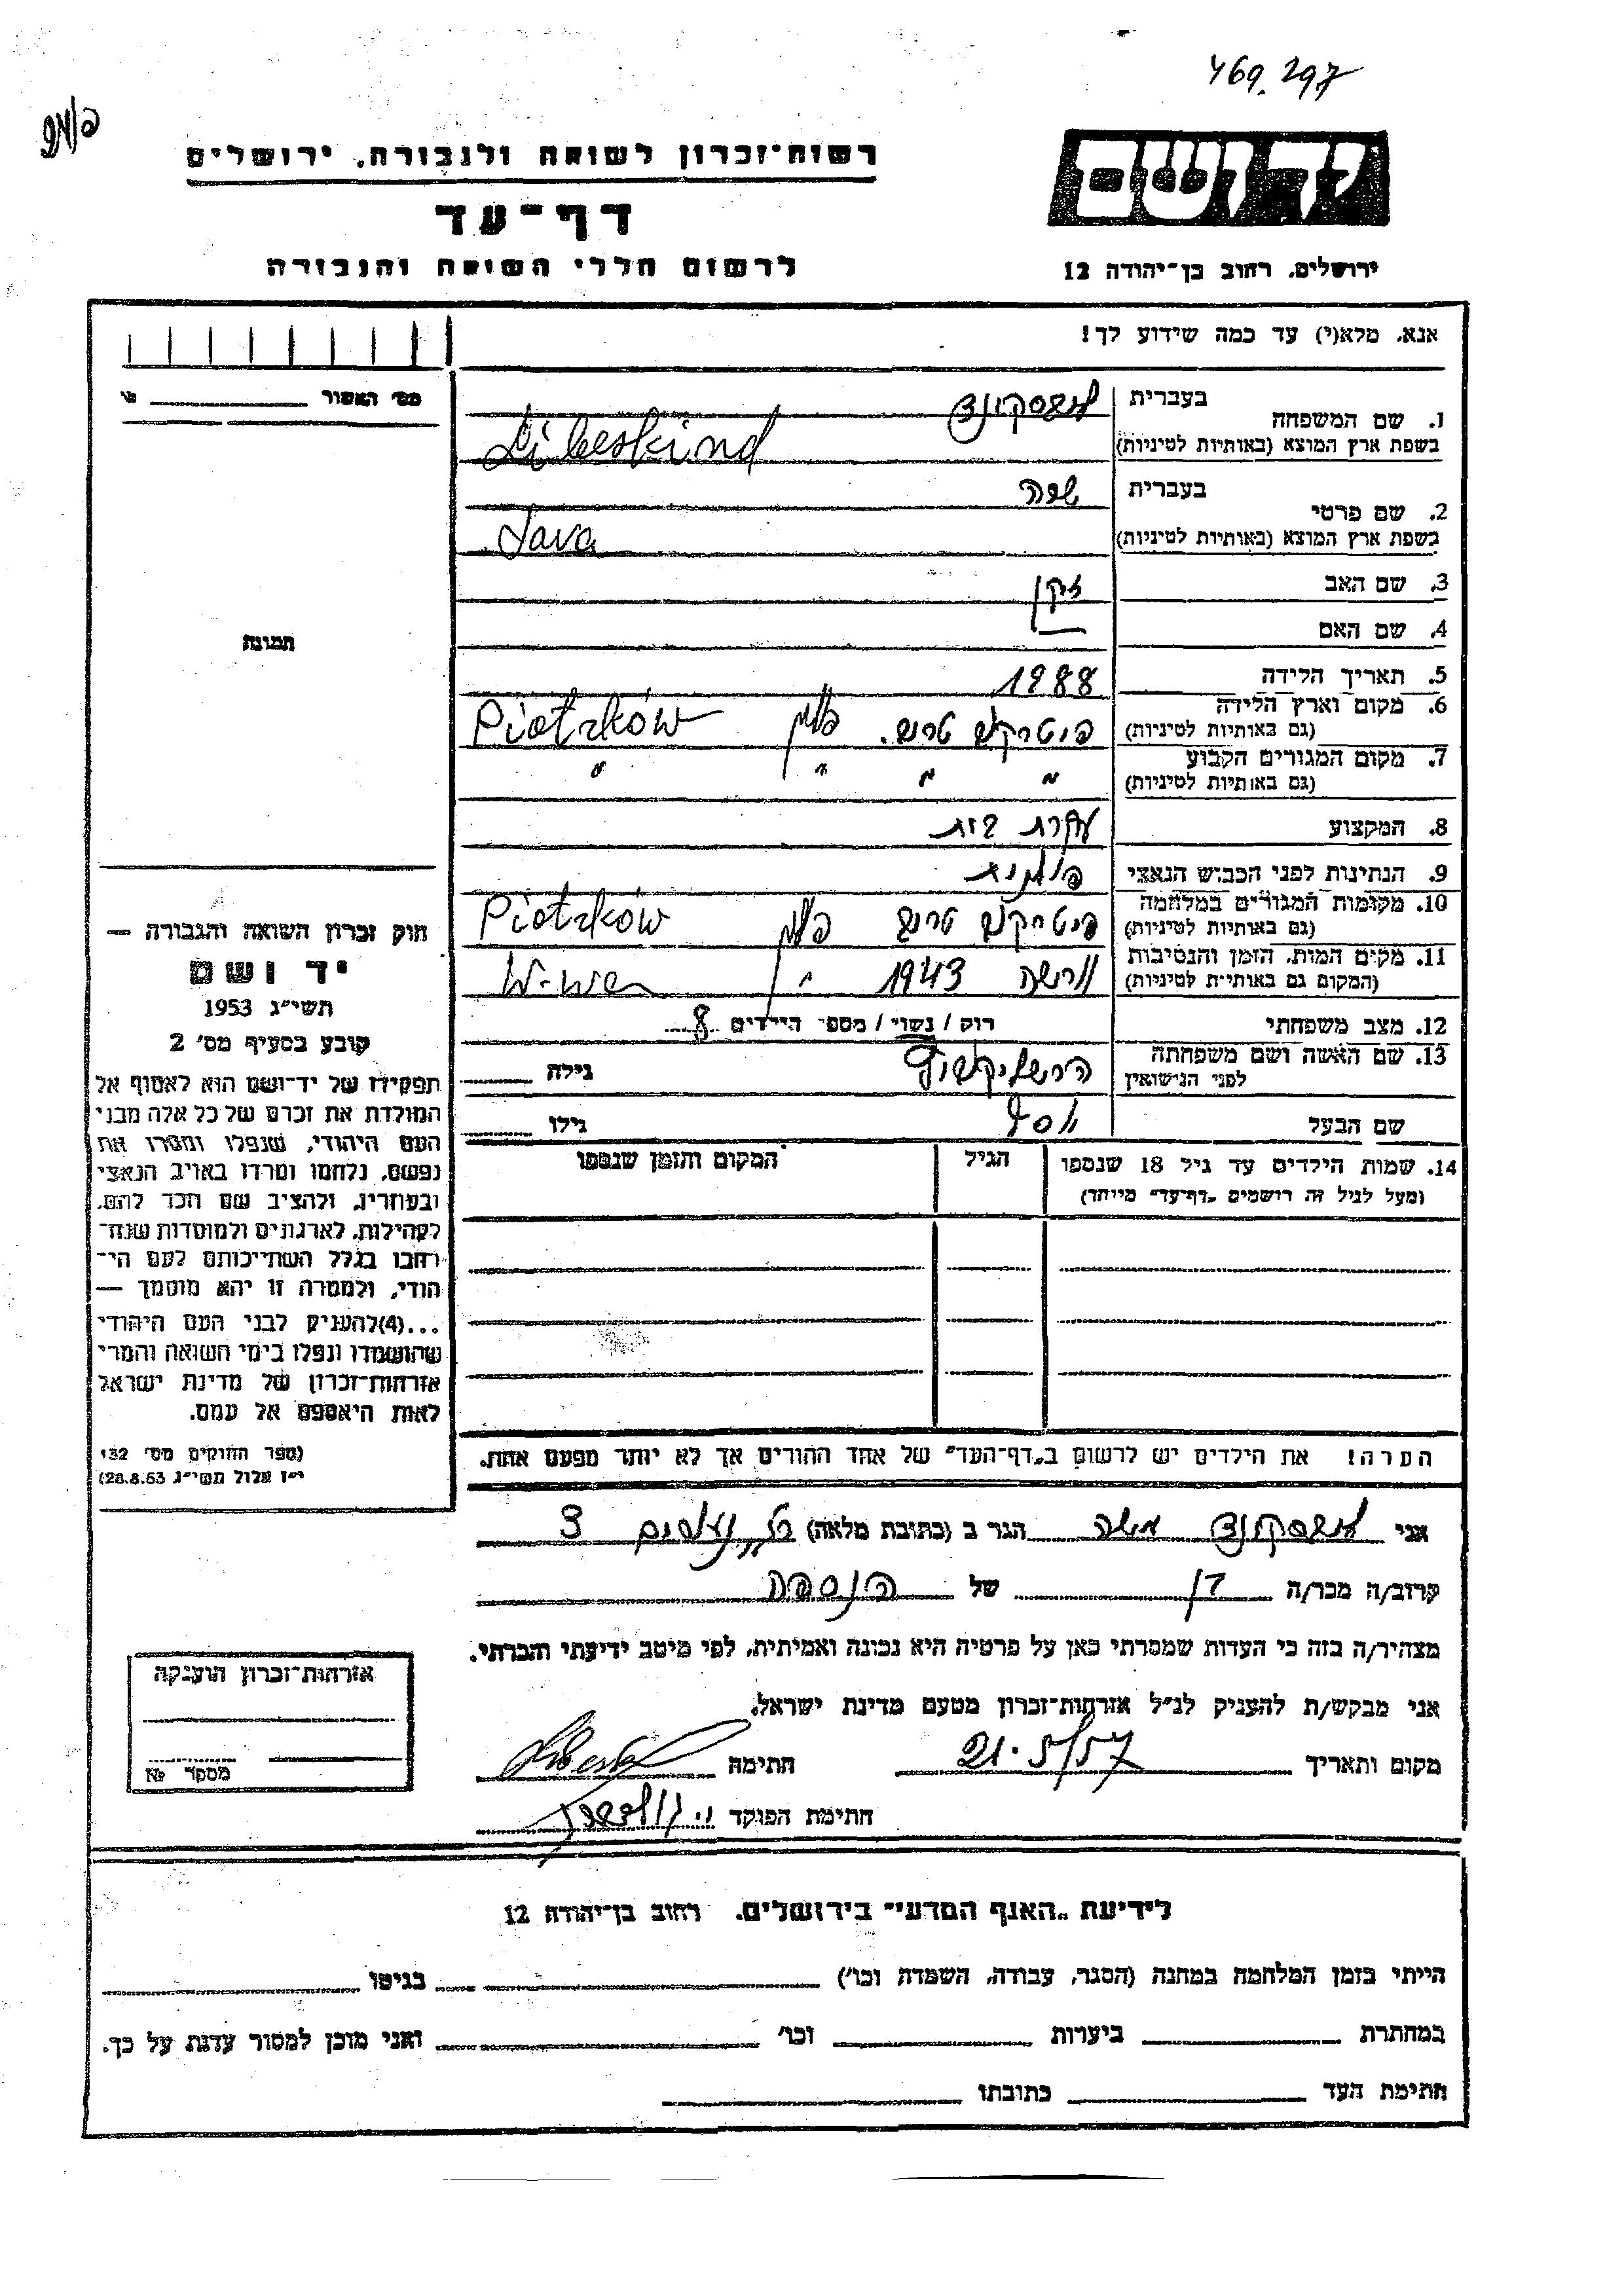 469.297
רשות־זכרון לשואה ולגבורה, ירושלים
יד ושם
דף־עד
לרשום חללי השואה והגבורה
ירושלים, רחוב בן־יהודה 12
אנא, מלא(י) עד כמה שידוע לך!
מס׳ האשור
1. שם המשפחה בעברית ליבסקינד
בשפת ארץ המוצא (באותיות לטיניות) Libeskind
2. שם פרטי בעברית שרה
בשפת ארץ המוצא (באותיות לטיניות)
3. שם האב
4. שם האם —
5. תאריך הלידה 1888
6. מקום וארץ הלידה (גם באותיות לטיניות) פיטרקוב טריב. פולין Piotrków
7. מקום המגורים הקבוע (גם באותיות לטיניות) " " " "
8. המקצוע עקרת בית
9. הנתינות לפני הכבוש הנאצי פולנית
10. מקומות המגורים במלחמה (גם באותיות לטיניות) פיטרקוב טריב פולין Piotrków
11. מקום המות, הזמן והנסיבות (המקום גם באותיות לטיניות) ורשה 1943 " W-wa
12. מצב משפחתי רוק / נשוי / מספר הילדים 8
13. שם האשה ושם משפחתה לפני הנישואין גילה
שם הבעל גילו
14. שמות הילדים עד גיל 18 שנספו הגיל המקום והזמן שנספו
(מעל לגיל זה רושמים „דף־עד״ מיוחד)
הערה! את הילדים יש לרשום ב„דף־העד״ של אחד ההורים אך לא יותר מפעם אחת.
תמונה
חוק זכרון השואה והגבורה —
יד ושם
תשי״ג 1953
קובע בסעיף מס׳ 2
תפקידו של יד־ושם הוא לאסוף אל
המולדת את זכרם של כל אלה מבני
העם היהודי, שנפלו ומסרו את
נפשם, נלחמו ומרדו באויב הנאצי
ובעוזריו, ולהציב שם וזכר להם,
לקהילות, לארגונים ולמוסדות שנח־
רבו בגלל השתייכותם לעם הי־
הודי, ולמטרה זו יהא מוסמך —
...(4) להעניק לבני העם היהודי
שהושמדו ונפלו בימי השואה והמרי
אזרחות־זכרון של מדינת ישראל
לאות היאספם אל עמם.
(ספר החוקים מס׳ 132
י״ז אלול תשי״ג 28.8.53)
אני ליבסקינד משה הגר ב (כתובת מלאה) 3
קרוב/ה מכר/ה בן של הנספה
מצהיר/ה בזה כי העדות שמסרתי כאן על פרטיה היא נכונה ואמיתית, לפי מיטב ידיעתי והכרתי.
אני מבקש/ת להעניק לנ״ל אזרחות־זכרון מטעם מדינת ישראל.
מקום ותאריך 21.5/57 חתימה
חתימת הפוקד
אזרחות־זכרון הוענקה
מספר №
לידיעת „האגף המדעי״ בירושלים, רחוב בן־יהודה 12
הייתי בזמן המלחמה במחנה (הסגר, עבודה, השמדה וכו׳) בגיטו
במחתרת ביערות וכו׳ ואני מוכן למסור עדות על כך.
חתימת העד כתובתו